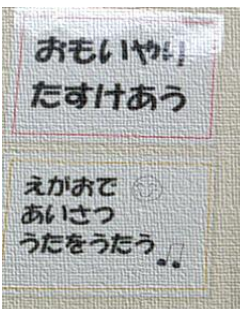 おもいやり
たすけあう
えがおで
あいさつ
うたをうたう